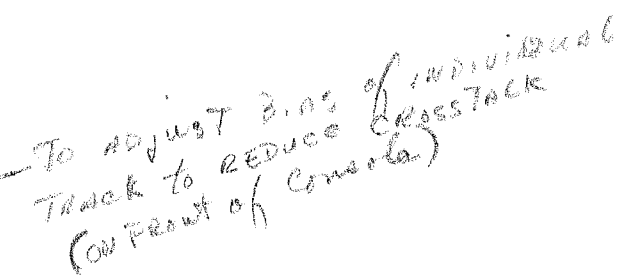 - To ADJUST BIAS of INDIVIDUAL
TRACK to REDUCE CROSSTALK
(ON FRONT of Console)